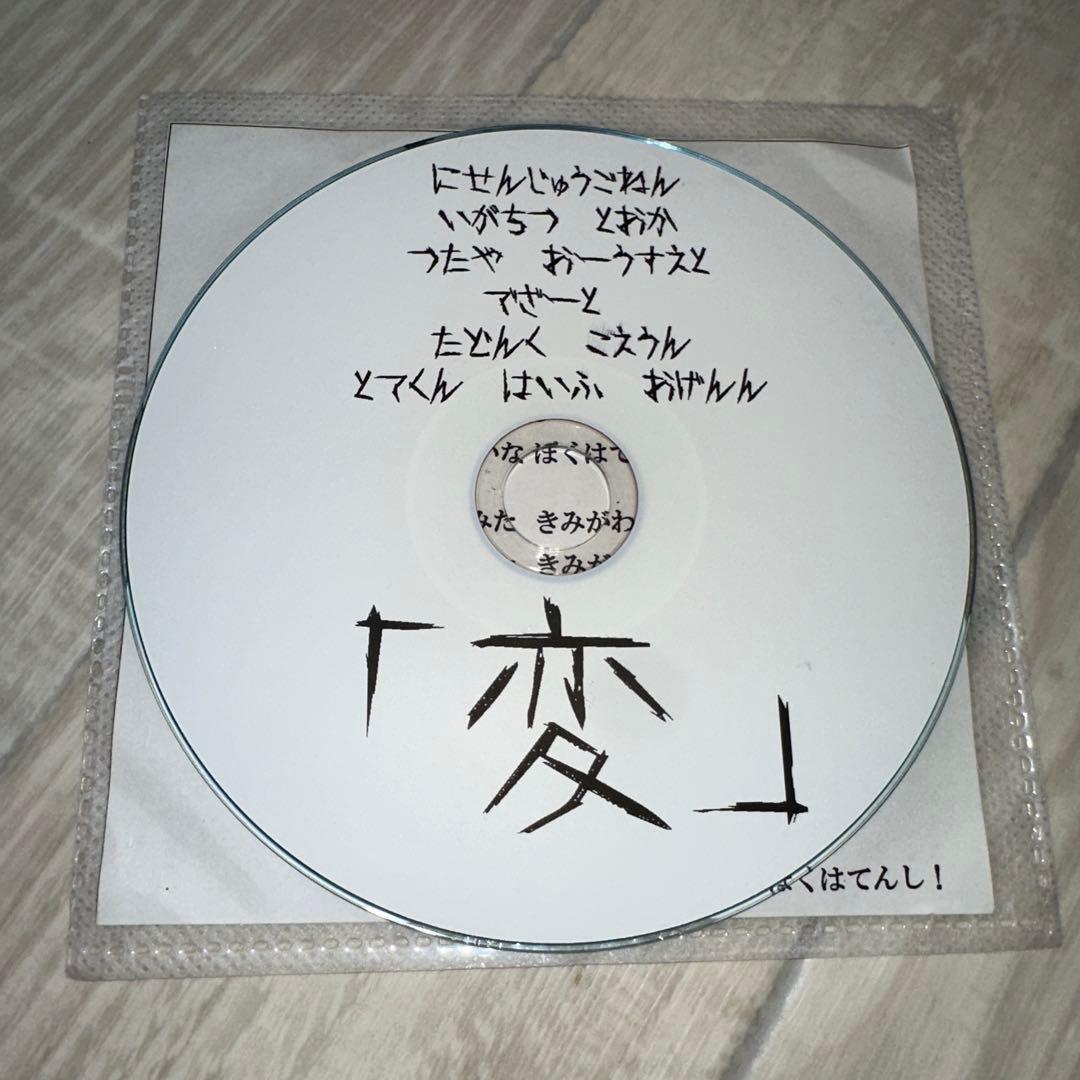 にせんじゅうごねん
いがちつ とおか
つたや おーうすえと
でざーと
たどんく ごえうん
とてくん はいふ おげんん
いな ぼくはて
みた きみがわ
きみが
「変」
ぼくはてんし!